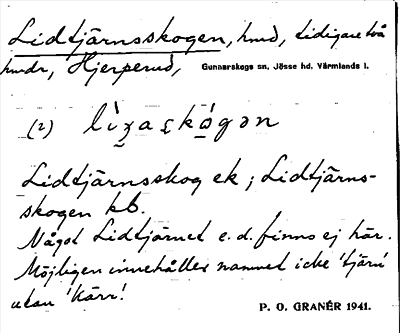 Lidtjärnsskogen, hmd, tidigare två
hmdr, Hjerperud, Gunnarskogs sn, Jösse hd. Värmlands l.
(2) lìʒaskó̱gən
Lidtjärnsskog ek; Lidtjärns-
skogen kb.
Något Lidtjärnet e.d. finns ej här.
Möjligen innehåller namnet icke 'tjärn'
utan 'kärr'.
P. O. GRANÉR 1941.